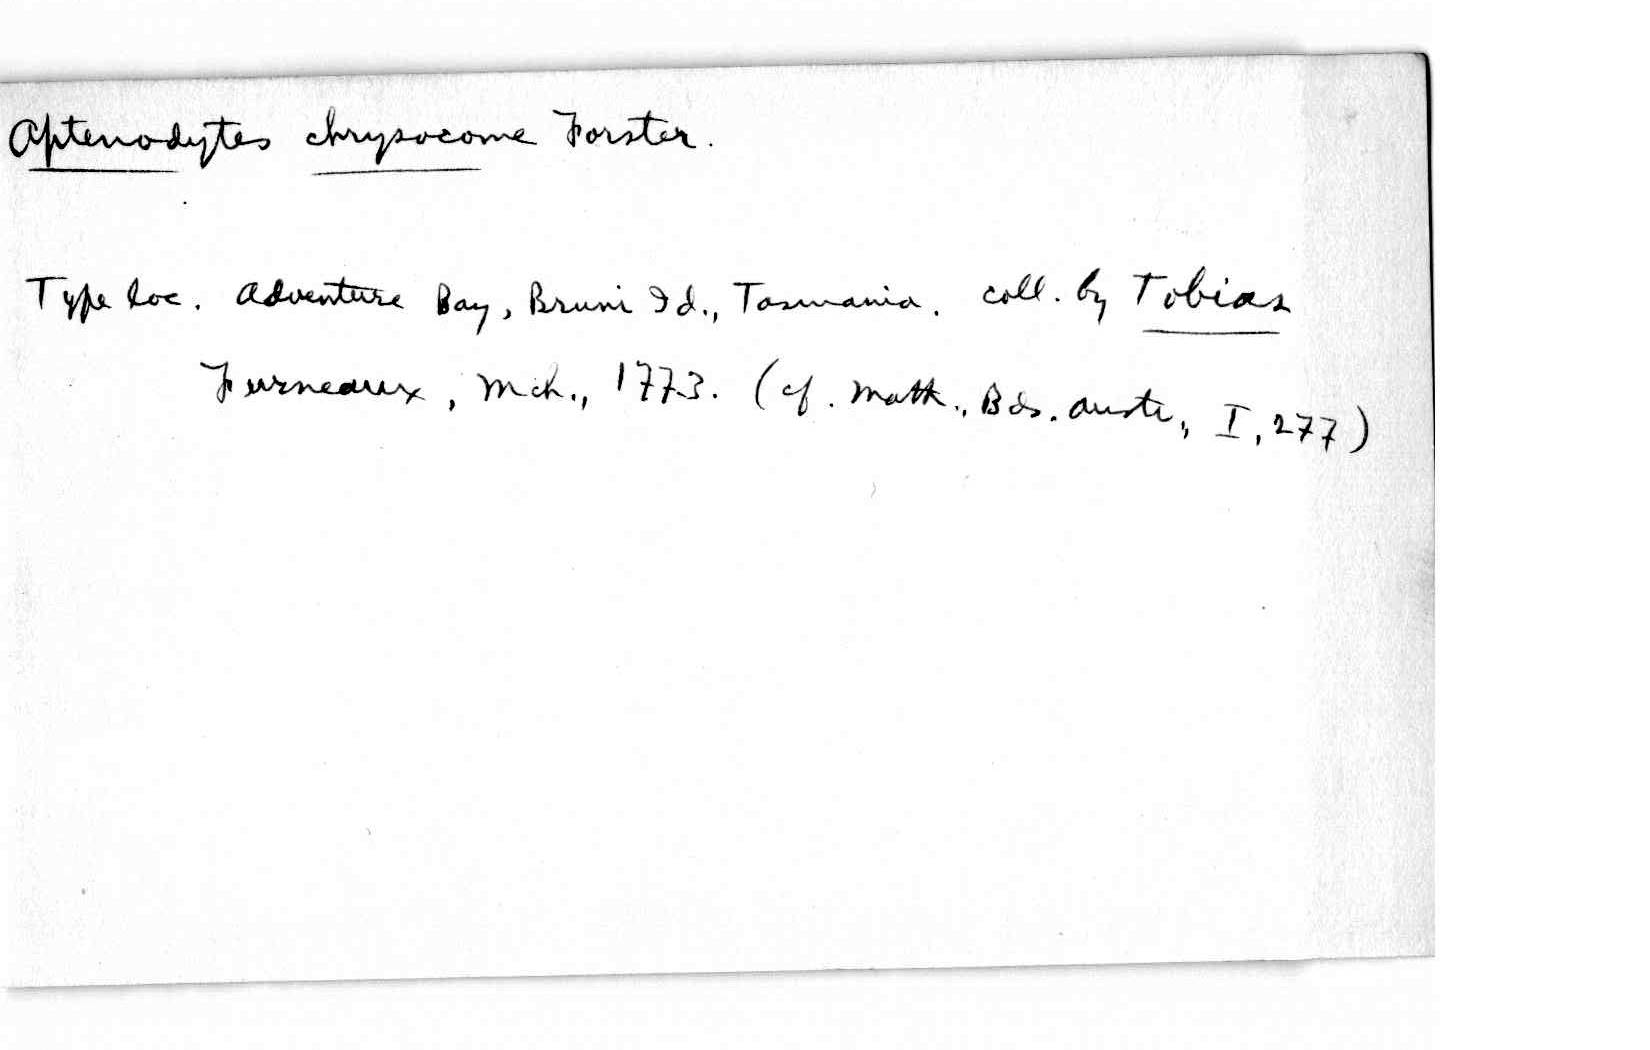 Aptenodytes chrysocome Forster.
Type loc. Adventure Bay, Bruni Id., Tasmania. coll. by Tobias
Furneaux, Mch., 1773. (cf. Math., Bds. Austr., I, 277)